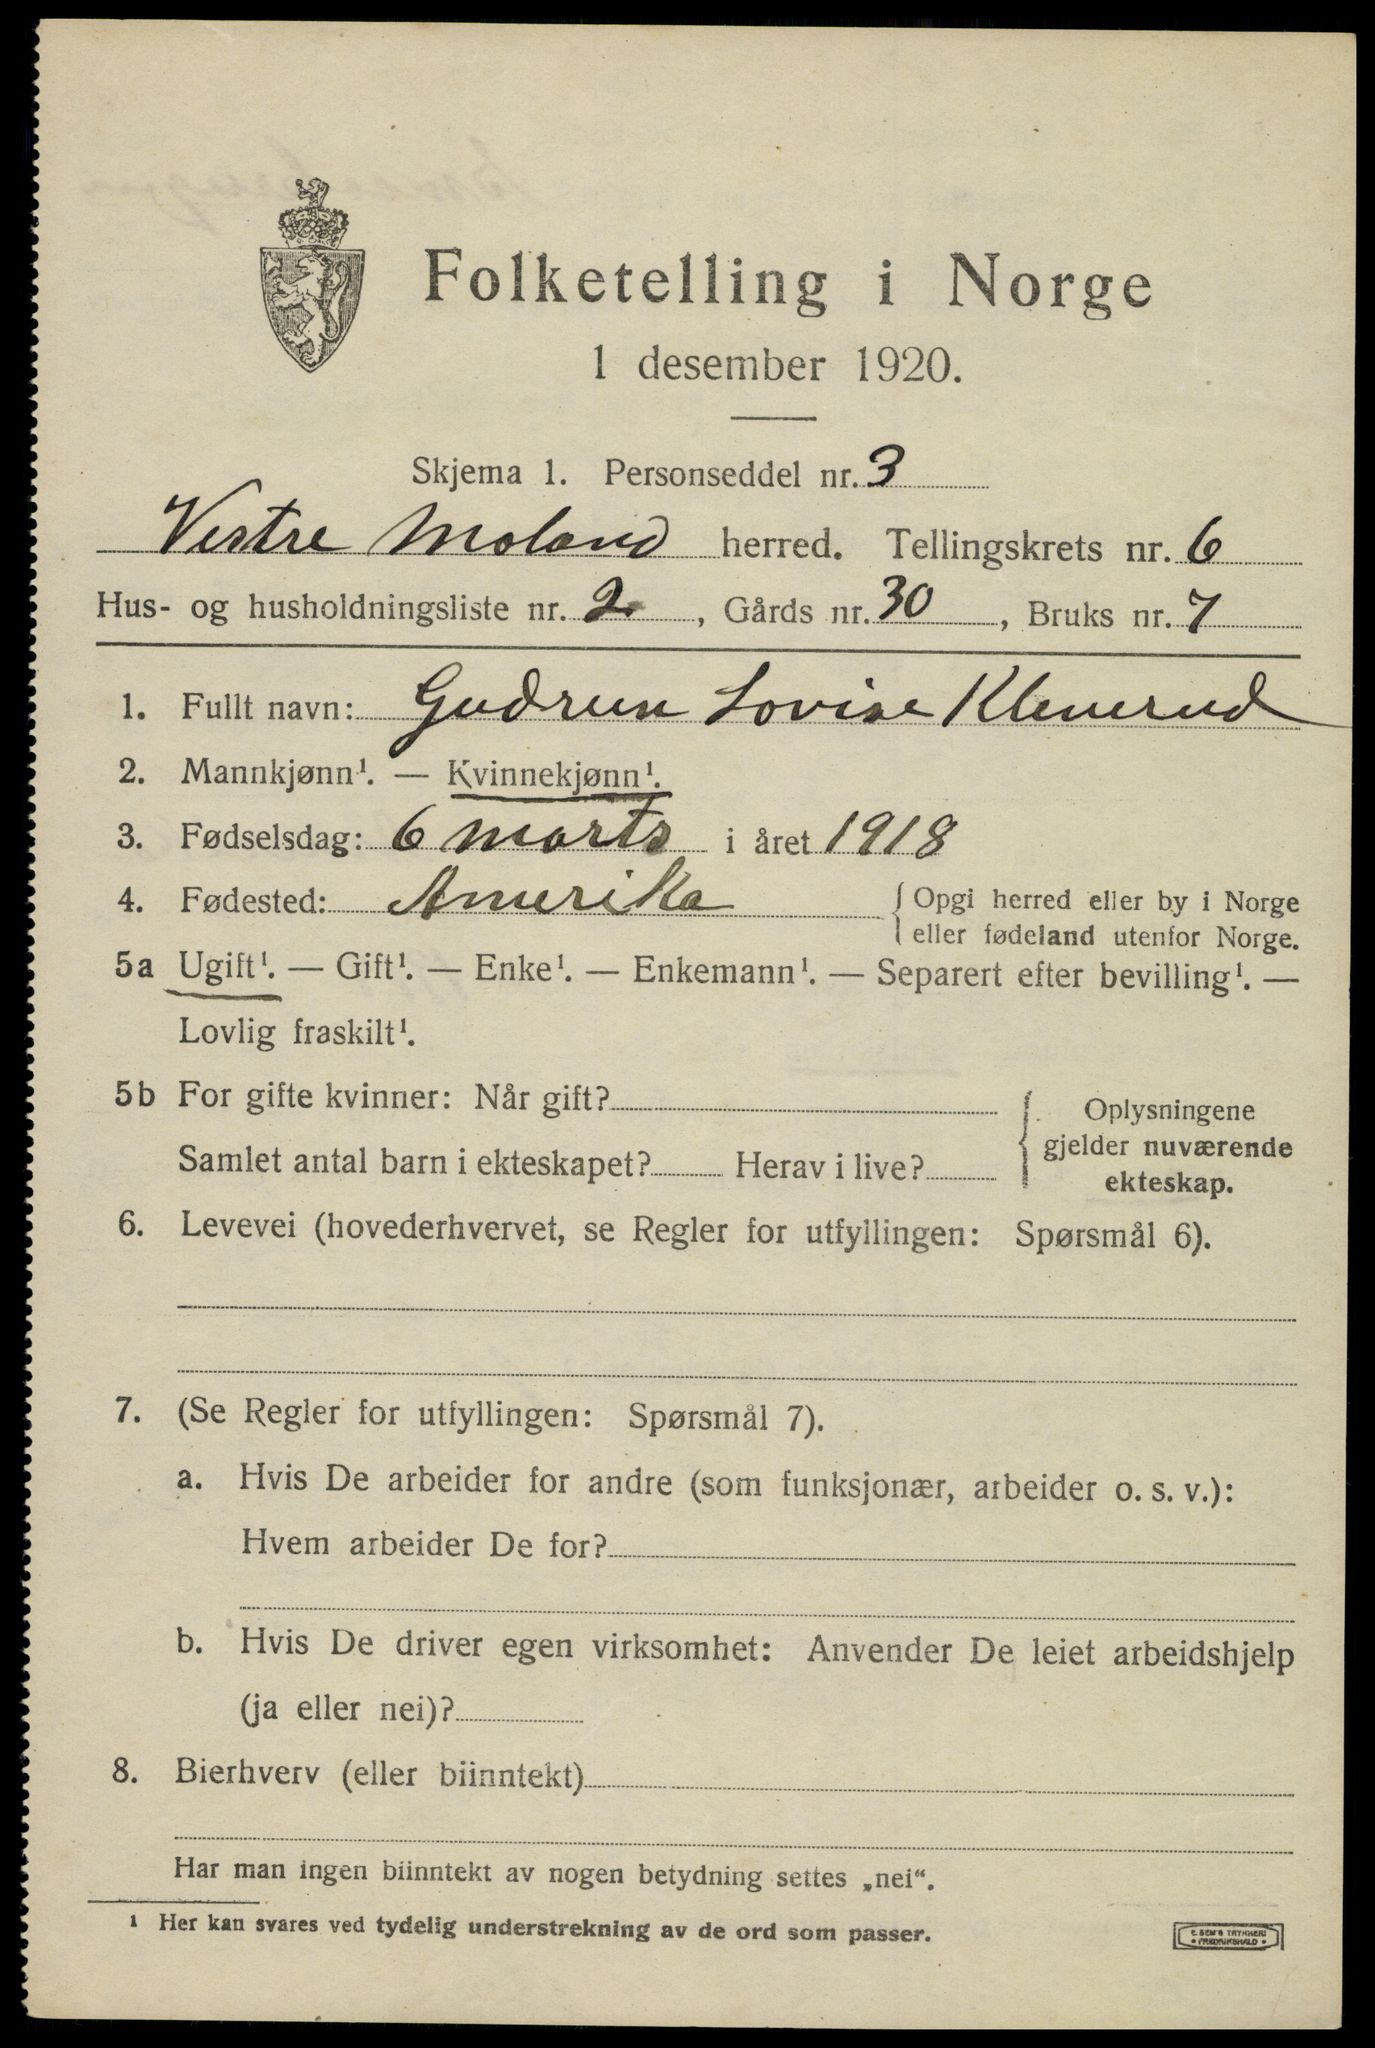 Folketelling i Norge
1 desember 1920.
Skjema 1. Personseddel nr. 3
Vestre Moland herred. Tellingskrets nr. 6
Hus- og husholdningsliste nr. 2, Gårds nr. 30, Bruks nr. 7
1. Fullt navn: Gudrun Lovise Kleverud
2. Mannkjønn¹. — Kvinnekjønn¹.
3. Fødselsdag: 6 marts i året 1918
4. Fødested: Amerika { Opgi herred eller by i Norge
eller fødeland utenfor Norge.
5a Ugift¹. — Gift¹. — Enke¹. — Enkemann¹. — Separert efter bevilling¹. —
Lovlig fraskilt¹.
5b For gifte kvinner: Når gift? { Oplysningene
Samlet antal barn i ekteskapet? Herav i live? gjelder nuværende
ekteskap.
6. Levevei (hovederhvervet, se Regler for utfyllingen: Spørsmål 6).
7. (Se Regler for utfyllingen: Spørsmål 7).
a. Hvis De arbeider for andre (som funksjonær, arbeider o. s. v.):
Hvem arbeider De for?
b. Hvis De driver egen virksomhet: Anvender De leiet arbeidshjelp
(ja eller nei)?
8. Bierhverv (eller biinntekt)
Har man ingen biinntekt av nogen betydning settes „nei“.
¹ Her kan svares ved tydelig understrekning av de ord som passer.
E. SEM'S TRYKKERI
• FREDRIKSHALD •